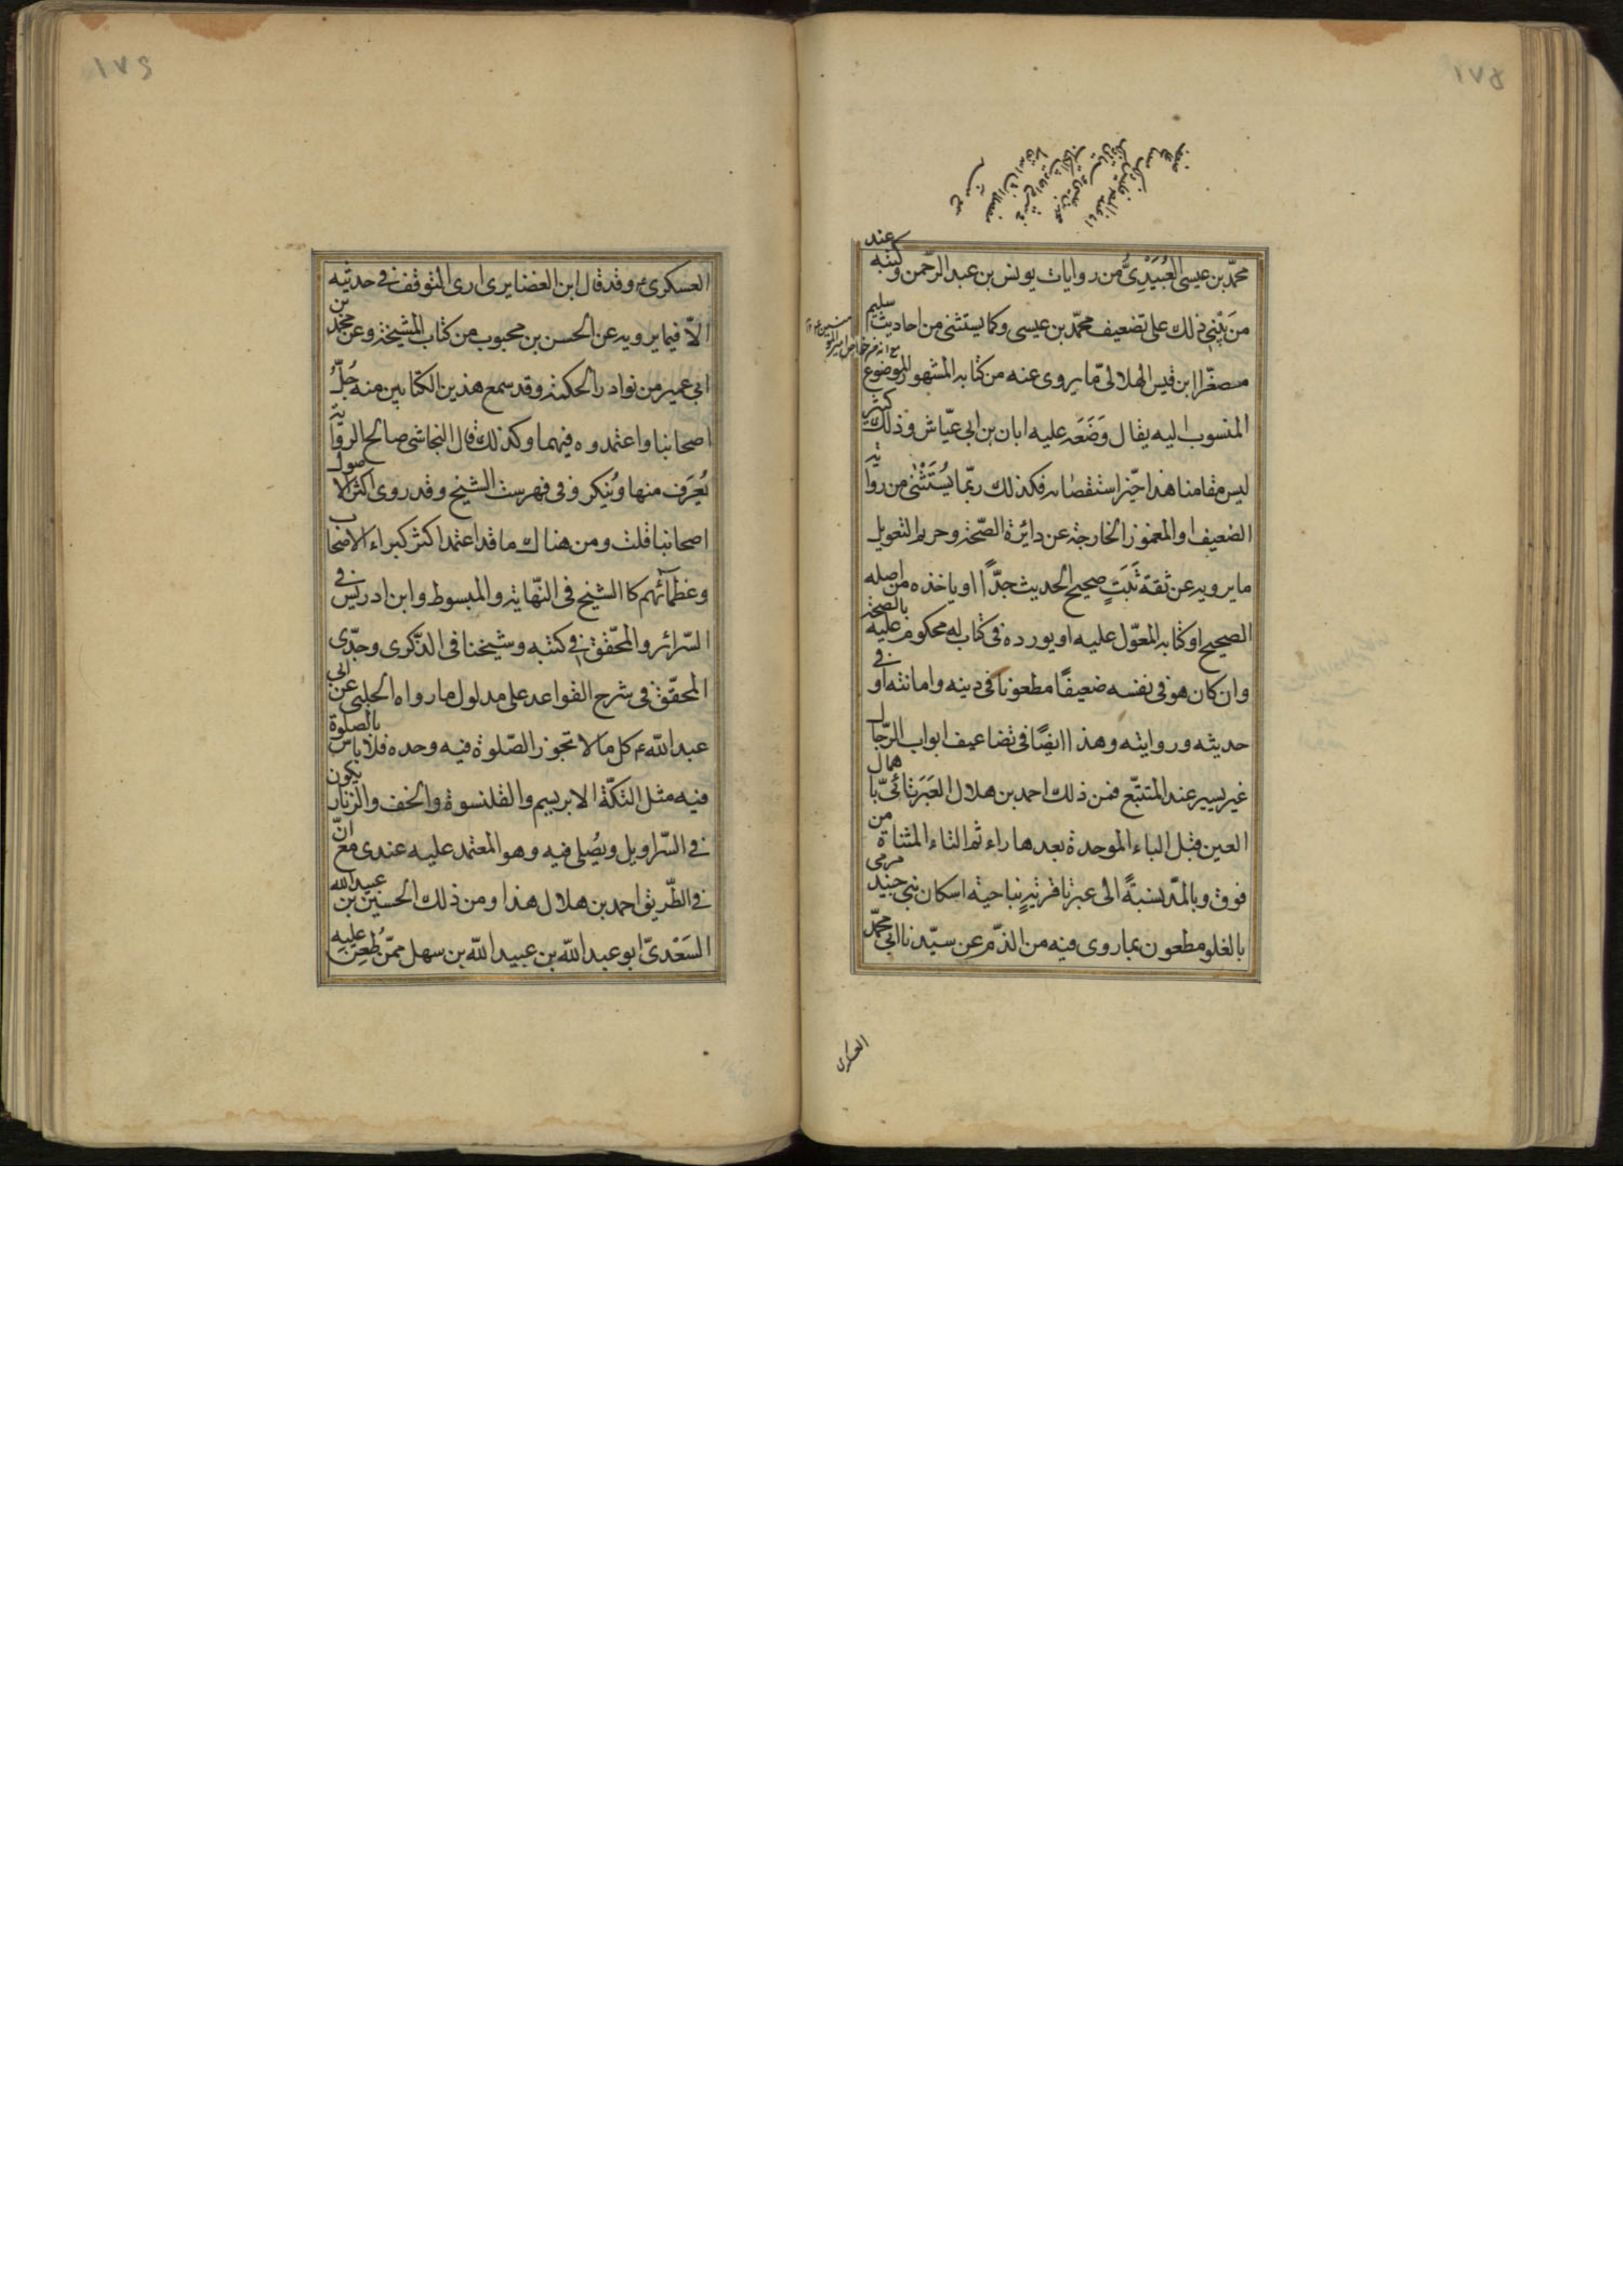 ١٧٥
محمّد بن عيسى العُبَيْدِىُّ من روايات يونس بن عبد الرّحمن وكتبه عند
مَن بَنْىِ ذلك على تضعيف محمّد بن عيسى وكما يستثنى من احاديث سليم
مصغّرا ابن قيس الهلالىّ ما يروى عنه من كتابه المشهور الموضوع
المنسوب اليه يقال وَضَعَه عليه ابان بن ابى عيّاش وذلك كثير
ليس مقامنا هذا حيّز استقصائه فكذلك ربّما يُسْتَثْنى من رواية
الضعيف او المغموز الخارجة عن دائرة الصّحة وحريم التعويل
ما يرويه عن ثقة ثَبَتٍ صحيح الحديث جدًّا او ياخذه من اصله
الصحيح او كتابه المعوّل عليه او يورده فى كتاب له محكوم عليه بالصحة
وان كان هو فى نفسه ضعيفًا مطعونا فى دينه وامانته او فى
حديثه وروايته وهذا ايضًا فى تضاعيف ابواب الرّجال
غير يسير عند المتتبّع فمن ذلك احمد بن هلال العَبَرتائىّ باهمال
العين قبل الباء الموحدة بعدها راء ثم التاء المثناة من
فوق وبالمدّ نسبةً الى عبرتا قرية بناحية اسكان بنى جنيد مرمى
بالغلو مطعون بما روى فيه من الذّم عن سيّدنا ابى محمّد
العسكرى
١٧٦
العسكرى ع وقد قال ابن الغضايرى ارى التوقف فى حديثه
الّا فيما يرويه عن الحسن بن محبوب من كتاب المشيخة وعن محمّد بن
ابى عمير من نوادر الحكمة وقد سمع هذين الكتابين منه جُلُّ
اصحابنا واعتمدوه فيهما وكذلك قال النجاشى صالح الرواية
يُعرَف منها ويُنكر وفى فهرست الشيخ وقد روى اكثر الاصول
اصحابنا قلت ومن هناك ما قد اعتمد اكثر كبراء الاصحاب
وعظمآئهم كالشيخ فى النّهاية والمبسوط وابن ادريس فى
السّرائر والمحقّق فى كتبه وشيخنا فى الذّكرى وجدّى
المحقّق فى شرح القواعد على مدلول ما رواه الحلبى عن ابى
عبد اللّه ع كل ما لا تجوز الصّلوة فيه وحده فلا باس بالصلوة
فيه مثل التكّة الابريسم والقلنسوة والخف والزنار يكون
فى السّراويل ويُصلى فيه وهو المعتمد عليه عندى مع انّ
فى الطّريق احمد بن هلال هذا ومن ذلك الحسين بن عبيد اللّه
السَعْدىّ ابو عبد اللّه بن عبيد اللّه بن سهل ممّن طُعِنَ عليه